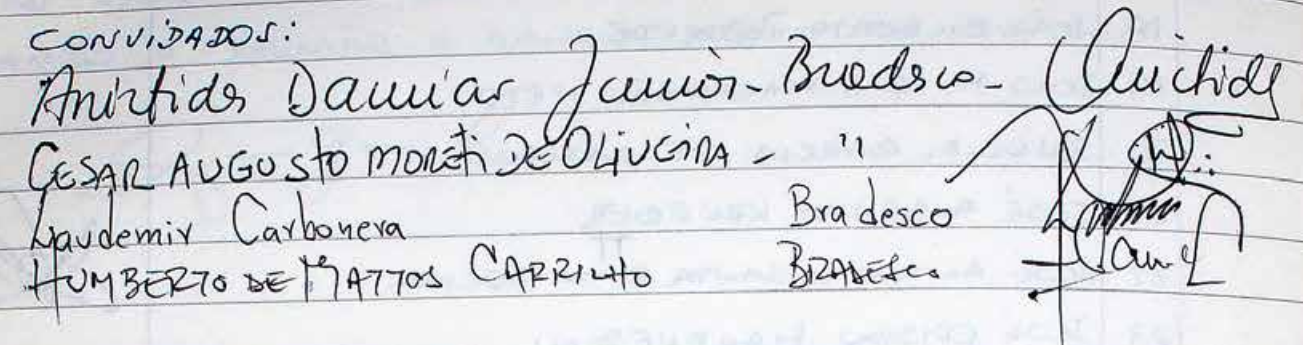 CONVIDADOS:
Aristides Damias Junior - Bradesco -
CESAR AUGUSTO MORETI DE OLIVEIRA - "
Laudemir Carbonera Bradesco
HUMBERTO DE MATTOS CARRILHO BRADESCO